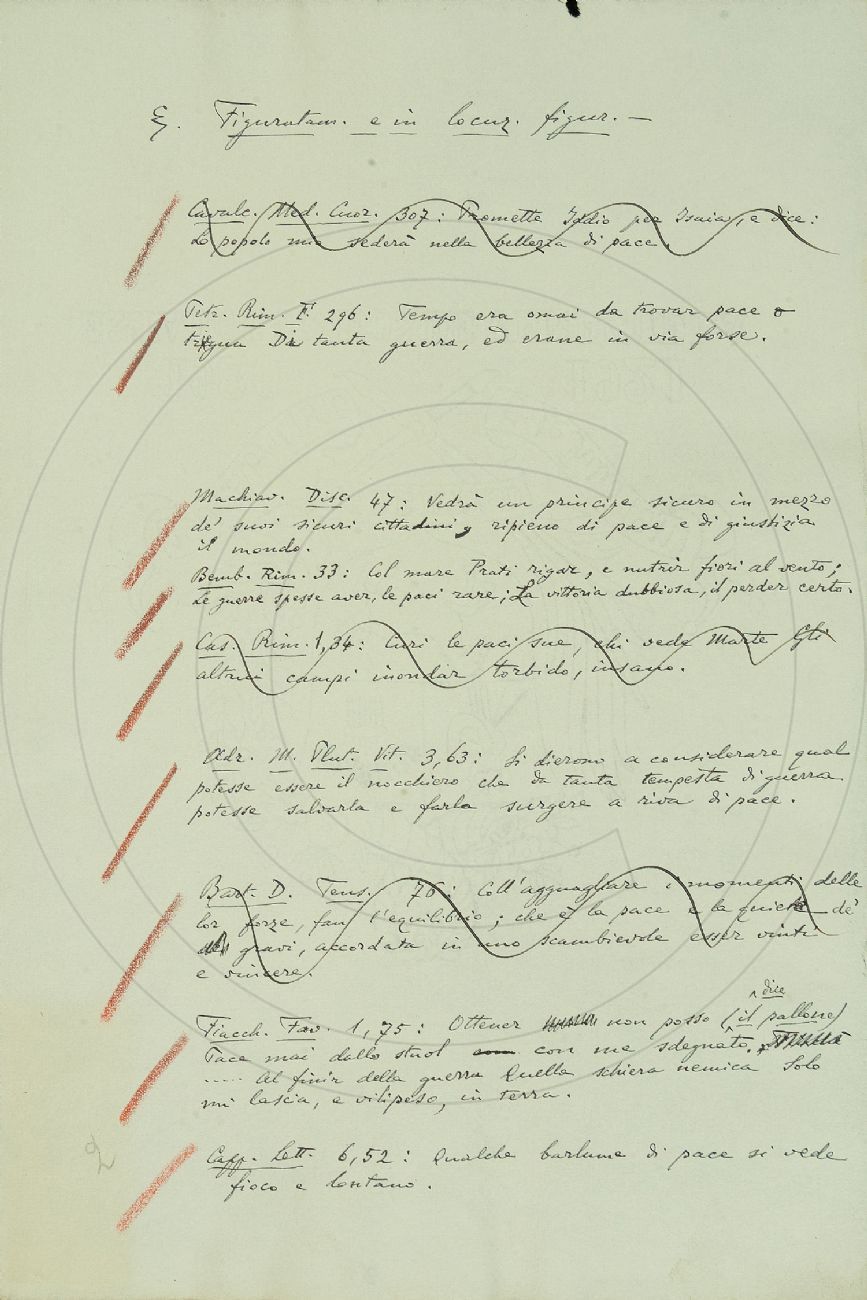 §. Figuratam. e in locuz. figur. —
Cavalc. Med. Cuor. 307: Promette Iddio per Isaia, e dice:
Lo popolo mio sederà nella bellezza di pace.
Petr. Rim. I. 296: Tempo era omai da trovar pace o
triegua Di tanta guerra, ed erane in via forse.
Machiav. Disc. 47: Vedrà un principe sicuro in mezzo
de' suoi sicuri cittadini, ripieno di pace e di giustizia
il mondo.
Bemb. Rim. 33: Col mare Prati rigar, e nutrir fiori al vento;
Le guerre spesse aver, le paci rare; La vittoria dubbiosa, il perder certo.
Cas. Rim. 1, 34: Curi le paci sue, chi vede Marte Gli
altrui campi inondar torbido, insano.
Adr. M. Plut. Vit. 3, 63: Si dierono a considerare qual
potesse essere il nocchiero che da tanta tempesta di guerra
potesse salvarla e farla surgere a riva di pace.
Bart. D. Tens. 76: Coll'agguagliare i momenti delle
lor forze, fan l'equilibrio; che è la pace e la quiete de'
gravi, accordata in uno scambievole esser vinti
e vincere.
Fiacch. Fav. 1, 75: Ottener non posso (dice il pallone)
Pace mai dallo stuol con me sdegnato.
..... Al finir della guerra Quella schiera nemica Solo
mi lascia, e vilipeso, in terra.
Capp. Lett. 6, 52: Qualche barlume di pace si vede
fioco e lontano.
2